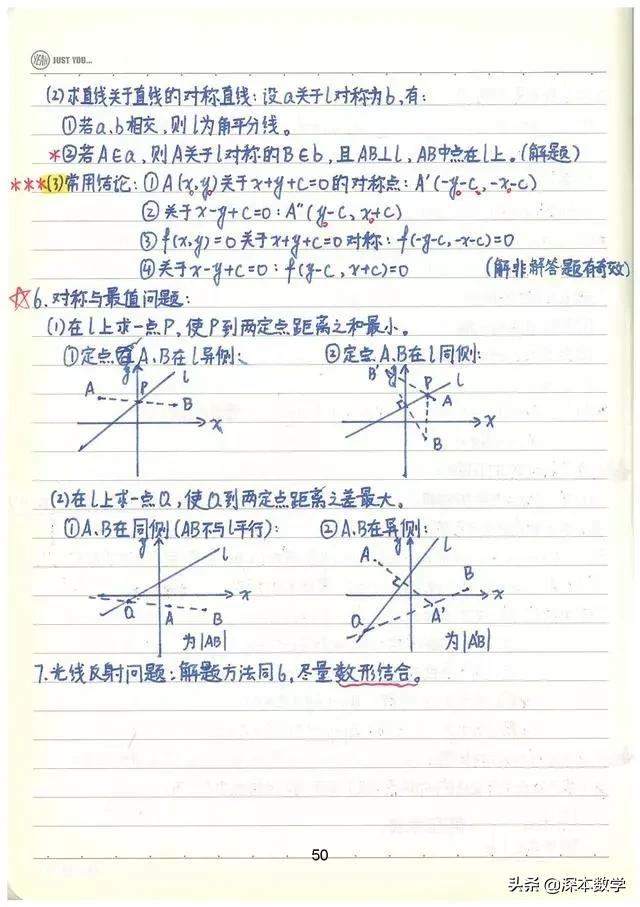 YEAH JUST YOU...
(2)求直线关于直线的对称直线:设a关于l对称为b,有:
①若a、b相交,则l为角平分线。
*②若A∈a,则A关于l对称的B∈b,且AB⊥l,AB中点在l上。(解题)
***(3)常用结论:①A(x,y)关于x+y+C=0的对称点:A'(-y-c,-x-c)
②关于x-y+C=0:A''(y-C,x+C)
③f(x,y)=0关于x+y+C=0对称:f(-y-C,-x-C)=0
④关于x-y+C=0:f(y-C,x+C)=0 (解非解答题有奇效)
☆6.对称与最值问题:
(1)在l上求一点P,使P到两定点距离之和最小。
①定点A、B在l异侧: ②定点A、B在l同侧:
y l B' y P l
A P B A
x x
B
(2)在l上求一点Q,使Q到两定点距离之差最大。
①A、B在同侧(AB不与l平行): ②A、B在异侧:
y l A y l
x B x
Q A B Q A'
为|AB| 为|A'B|
7.光线反射问题:解题方法同6,尽量数形结合。
50
头条 @深本数学